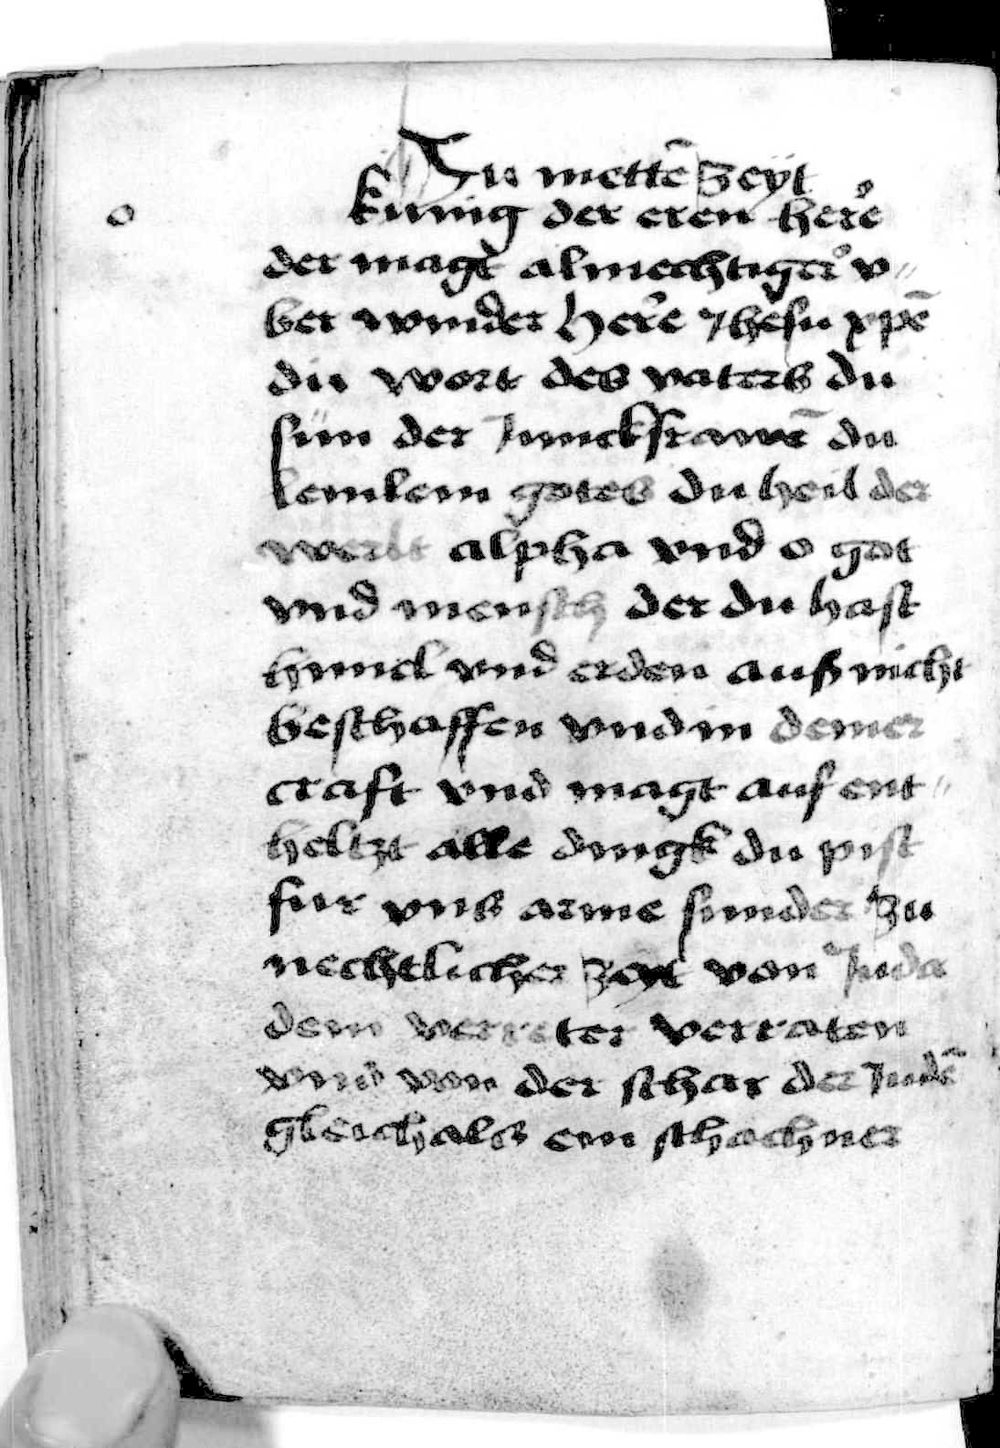 Zu mettē zeyt
o kunig der eren here
der magt almechtiger v„
ber wnnder Here Jhesu xp̄e
du wort des vaters du
sün der Junckfrawē du
lemlein gotes du heil der
werlt alpha vnd o got
vnd mensch der du hast
himel vnd erden auß nicht
beschaffen vnd in deiner
craft vnd magt auf ent„
heltzt alle dingk du pist
fur vns arme sunder zu
nechtlicher zeyt von Juda
dem verreter verraten
vnd von der schar der Judē
gleich als ein schachner